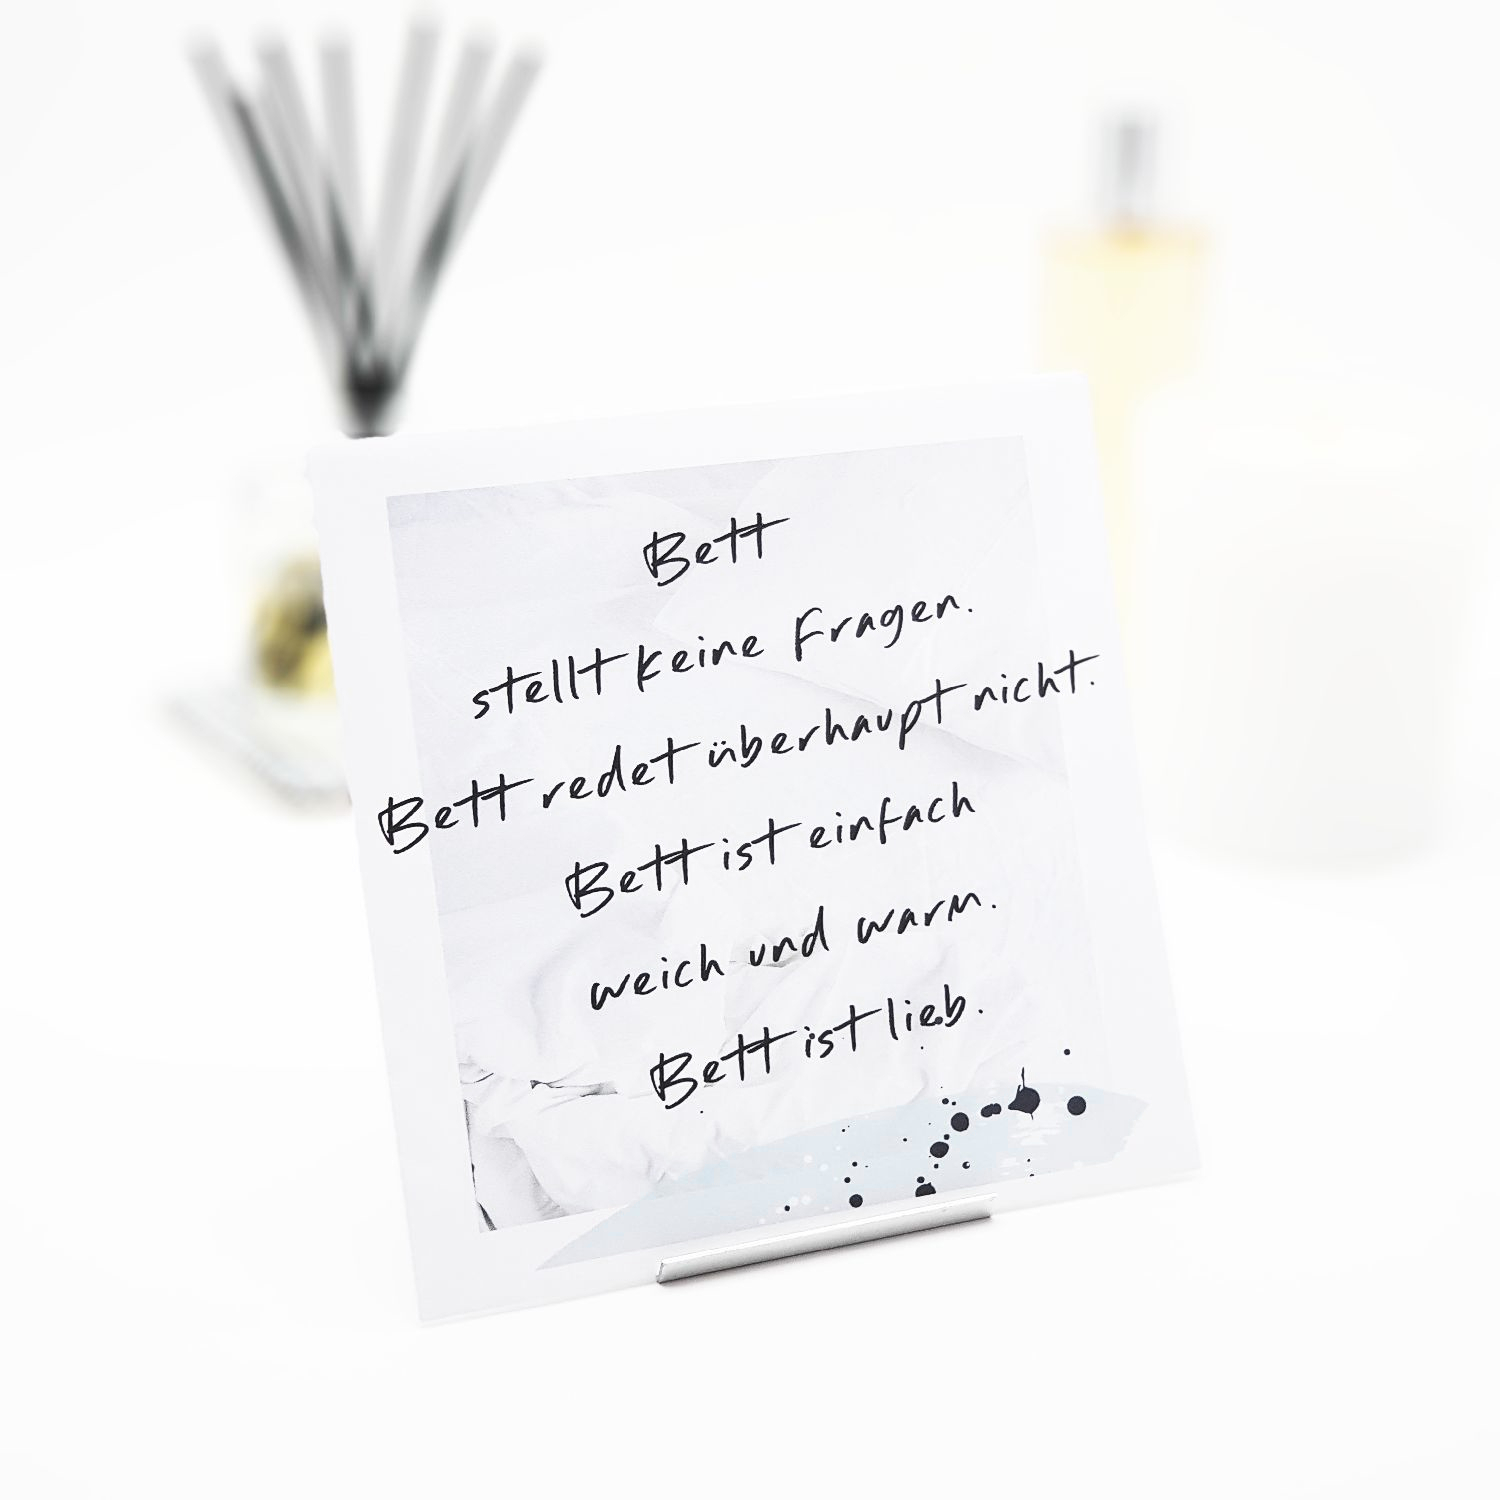 Bett
stellt keine Fragen.
Bett redet überhaupt nicht.
Bett ist einfach
weich und warm.
Bett ist lieb.